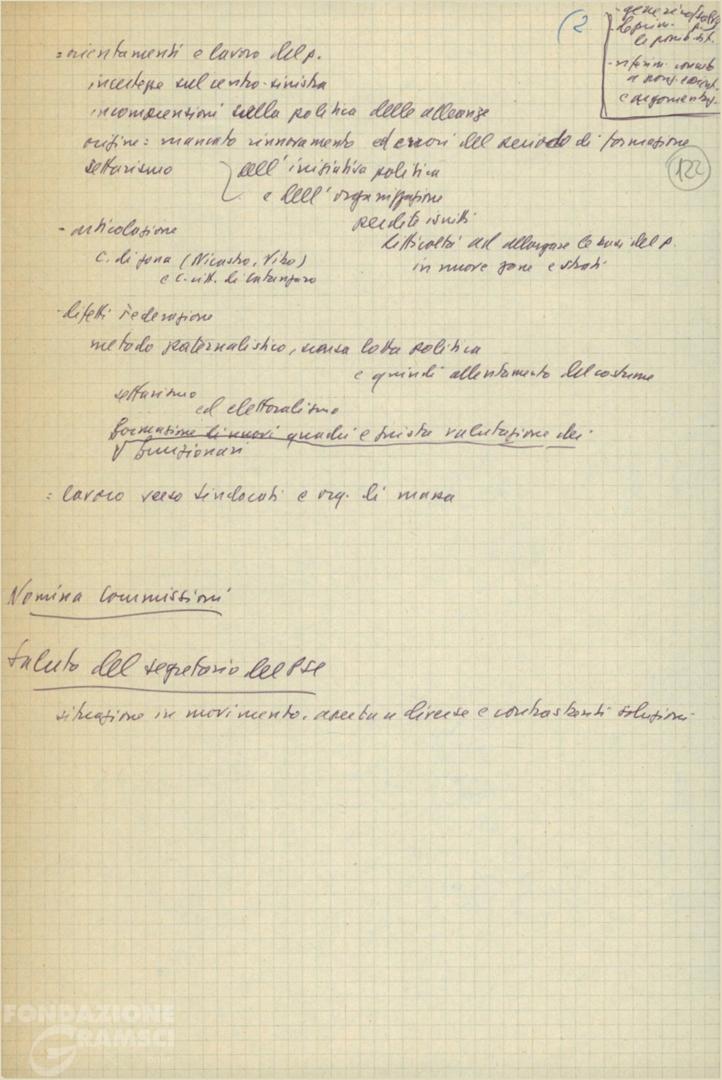 (2
- generico/
deprim.
le possibilit.
- riferim.
a
e argomentaz.
= orientamenti e lavoro del p.
incertezze sul centro-sinistra
incomprensioni sulla politica delle alleanze
origine: mancato rinnovamento ed errori del periodo di formazione
122
settarismo dell'iniziativa politica
e dell'organizzazione
perdite iscritti
difficoltà ad allargare le basi del p.
in nuove zone e strati
- articolazione
C. di zona (Nicastro, Vibo)
e C. citt. di Catanzaro
- difetti Federazione
metodo paternalistico, senza lotta politica
e quindi allentamento del costume
settarismo
ed elettoralismo
formazione di nuovi quadri e giusta valutazione dei
funzionari
= lavoro verso sindacati e org. di massa
Nomina Commissioni
Saluto del segretario del PSI
situazione in movimento, aperta a diverse e contrastanti soluzioni
FONDAZIONE
GRAMSCI